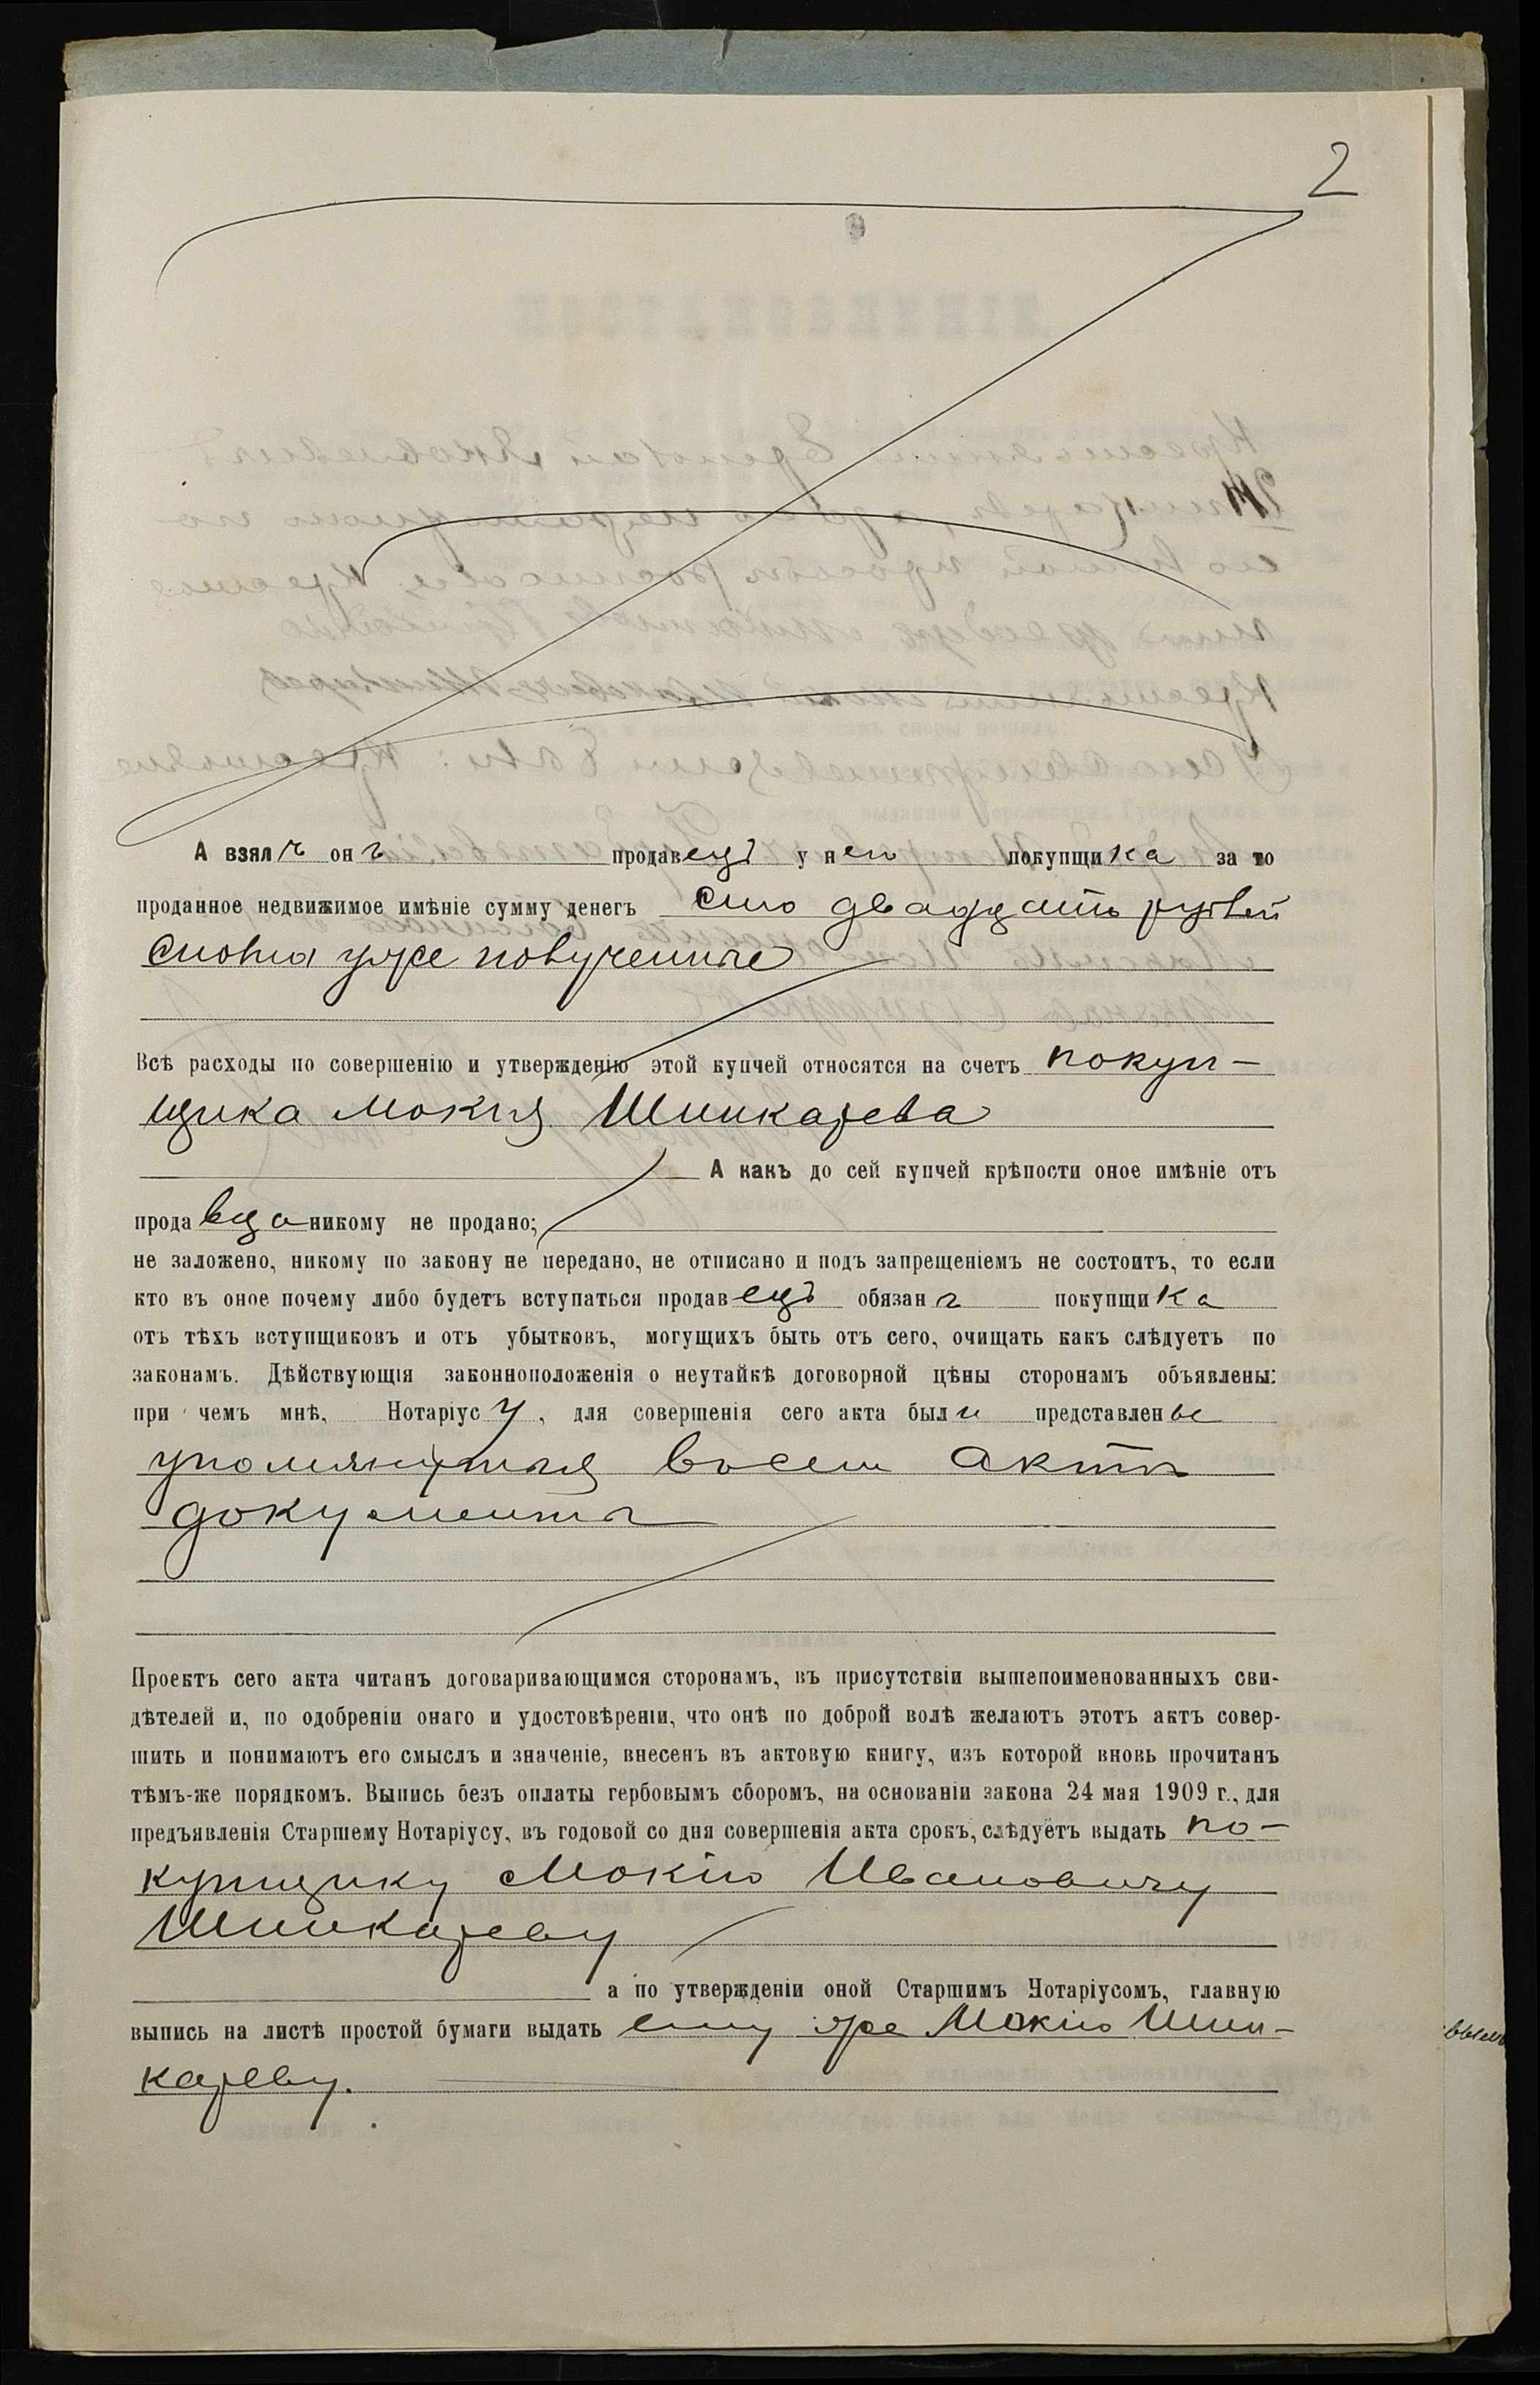 2
А взялъ онъ продавецъ у него покупщика за то
проданное недвижимое имѣніе сумму денегъ сто двадцать рублей
сполна уже полученные
Всѣ расходы по совершенію и утвержденію этой купчей относятся на счетъ покуп-
щика Мокія Шинкарева
А какъ до сей купчей крѣпости оное имѣніе отъ
продавца никому не продано;
не заложено, никому по закону не передано, не отписано и подъ запрещеніемъ не состоитъ, то если
кто въ оное почему либо будетъ вступаться продавецъ обязанъ покупщика
отъ тѣхъ вступщиковъ и отъ убытковъ, могущихъ быть отъ сего, очищать какъ слѣдуетъ по
законамъ. Дѣйствующія законноположенія о неутайкѣ договорной цѣны сторонамъ объявлены:
при чемъ мнѣ, Нотаріусу, для совершенія сего акта были представлены
упомянутыя въ сем актѣ
документы
Проектъ сего акта читанъ договаривающимся сторонамъ, въ присутствіи вышепоименованныхъ сви-
дѣтелей и, по одобреніи онаго и удостовѣреніи, что онѣ по доброй волѣ желаютъ этотъ актъ совер-
шить и понимаютъ его смыслъ и значеніе, внесенъ въ актовую книгу, изъ которой вновь прочитанъ
тѣмъ-же порядкомъ. Выпись безъ оплаты гербовымъ сборомъ, на основаніи закона 24 мая 1909 г., для
предъявленія Старшему Нотаріусу, въ годовой со дня совершенія акта срокъ, слѣдуетъ выдать по-
купщику Мокію Ивановичу
Шинкареву
а по утвержденіи оной Старшимъ Нотаріусомъ, главную
выпись на листѣ простой бумаги выдать ему же Мокію Шин-
кареву.